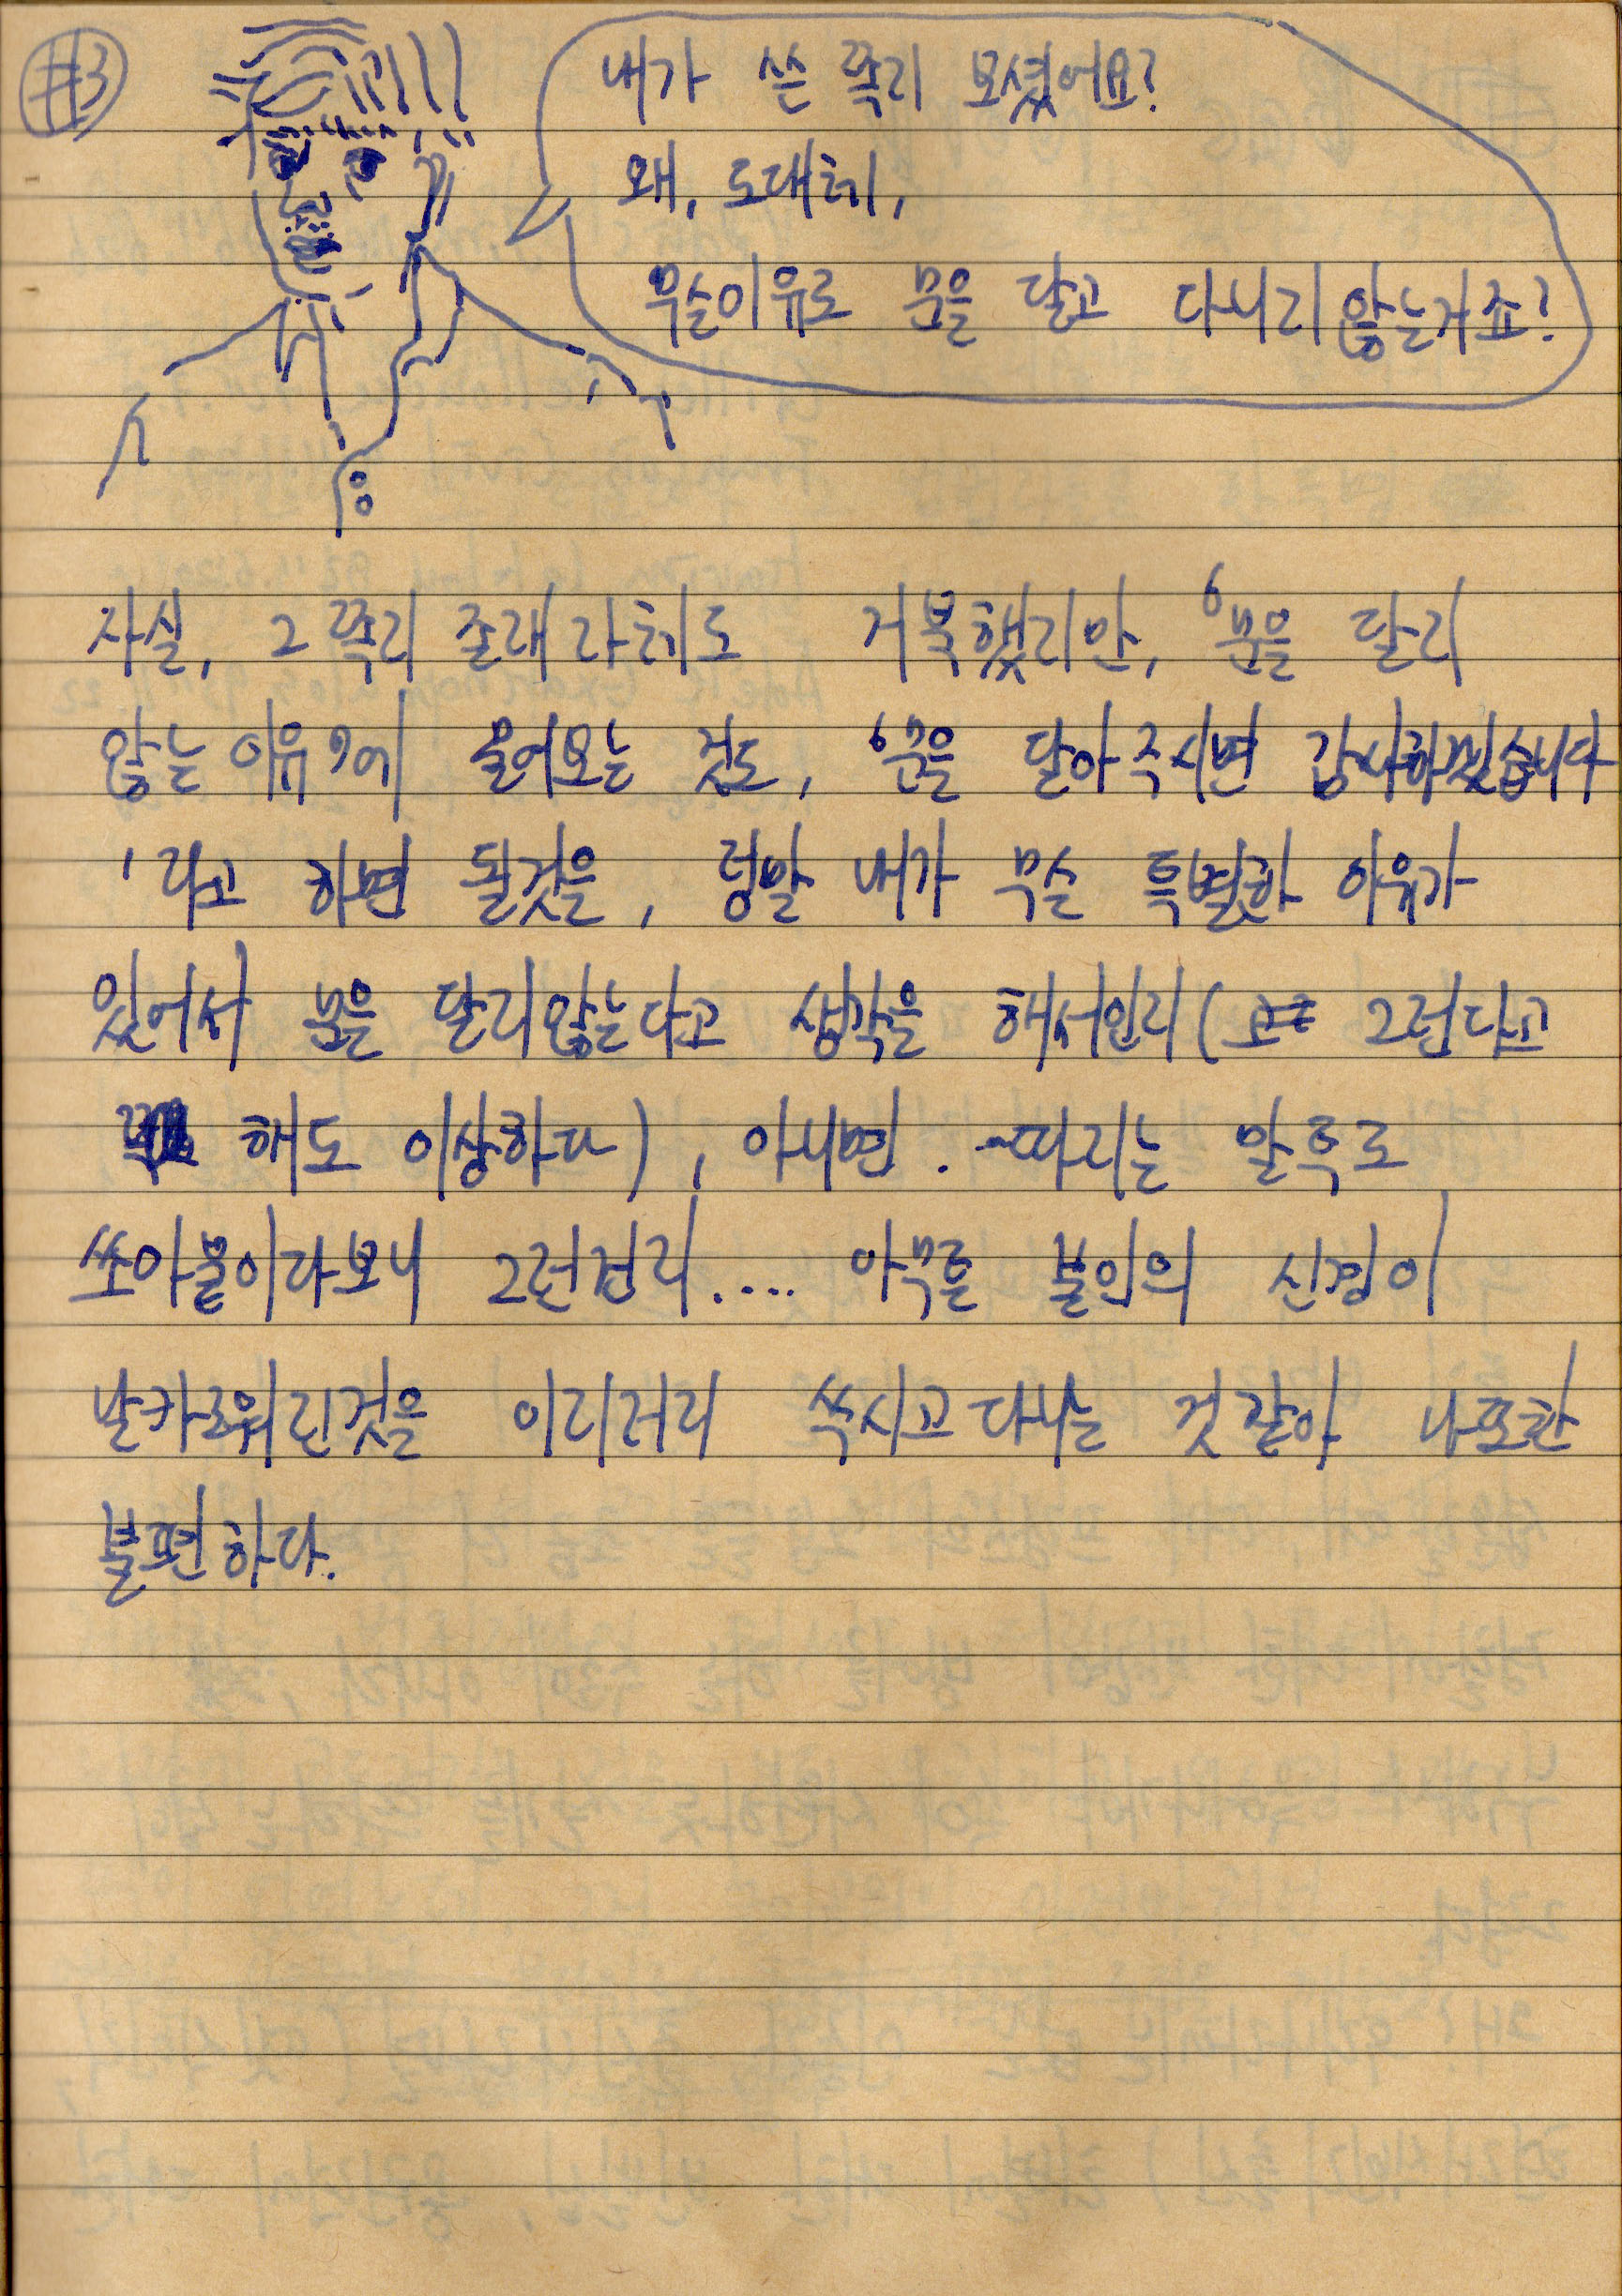 #3
내가 쓴 쪽지 보셨어요?
왜, 도대체,
무슨이유로 문을 닫고 다니지 않는거죠?
사실, 그 쪽지 존재 자체도 거북했지만, '문을 닫지
않는 이유'에 물어보는 것도, '문을 닫아주시면 감사하겠습니다
'라고 하면 될것을, 정말 내가 무슨 특별한 이유가
있어서 문을 닫지않는다고 생각을 해서인지( 그런다고
해도 이상하다), 아니면. ~따지는 말투로
쏘아붙이다보니 그런건지.... 아무튼 본인의 신경이
날카로워진것을 이리저리 쑥시고다니는 것같아 나또한
불편하다.